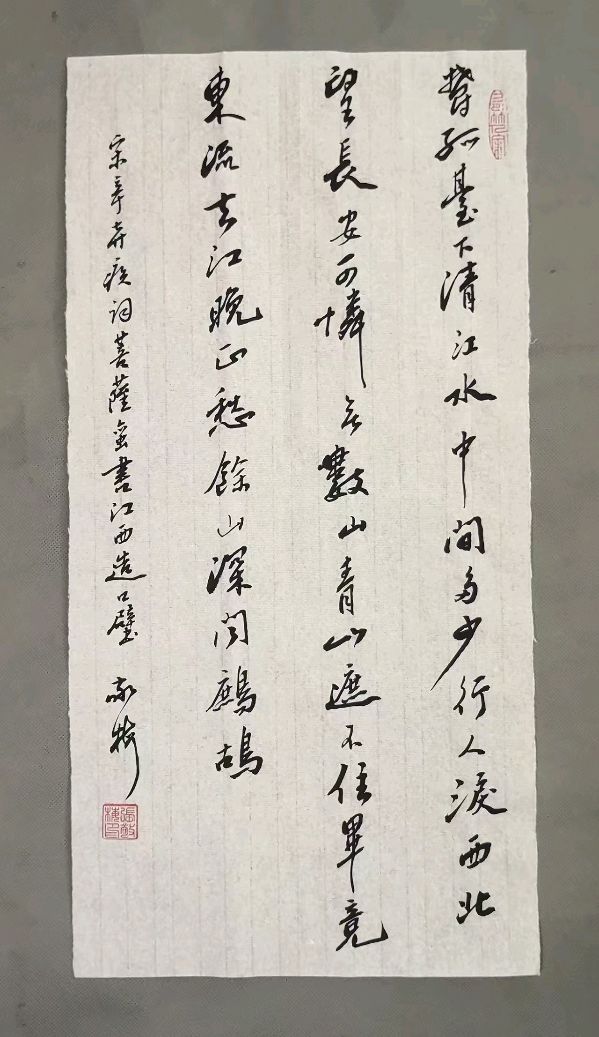 鬱孤臺下清江水中間多少行人淚西北
望長安可憐無數山青山遮不住畢竟
東流去江晚正愁餘山深聞鷓鴣
宋辛弃疾词菩薩蛮書江西造口壁